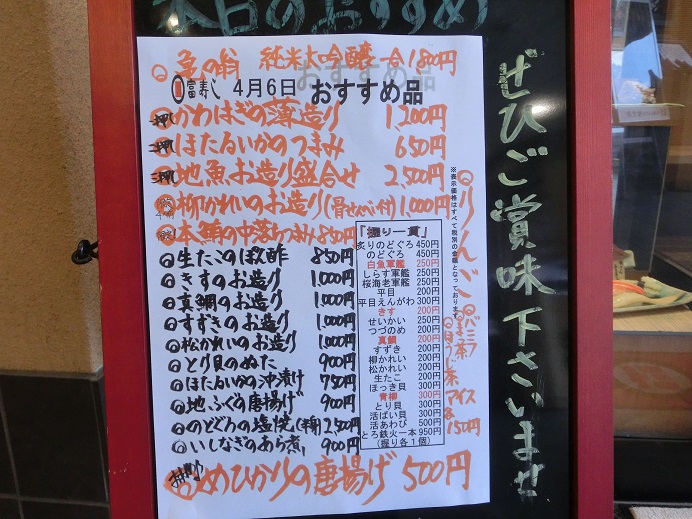 本日のおすすめ
亀の翁 純米大吟醸 一合1800円
富寿し 4月6日 おすすめ品
かわはぎの薄造り 1,200円
ほたるいかのつまみ 650円
地魚お造り盛合せ 2,500円
柳かれいのお造り(骨せんべい付) 1,000円
本鮪の中落ちつまみ 850円
生たこのぽん酢 850円
きすのお造り 1,000円
真鯛のお造り 1,000円
すずきのお造り 1,000円
松かれいのお造り 1,000円
とり貝のぬた 900円
ほたるいかの沖漬け 750円
地ふぐの唐揚げ 900円
のどぐろの塩焼(半身) 2,500円
いしなぎのあら煮 900円
めひかりの唐揚げ 500円
『握り一貫』
炙りのどぐろ 450円
のどぐろ 450円
白魚軍艦 250円
しらす軍艦 250円
桜海老軍艦 250円
平目 200円
平目えんがわ 300円
きす 200円
せいかい 250円
つづのめ 200円
真鯛 200円
すずき 200円
柳かれい 200円
松かれい 200円
生たこ 200円
ほっき貝 300円
青柳 300円
とり貝 300円
活ばい貝 300円
活あわび 500円
とろ鉄火一本 950円
(握り各1個)
※表示価格はすべて税別の金額となっております
りんご
バニラ
抹茶
ほうじ茶 アイス
各150円
ぜひご賞味下さいませ